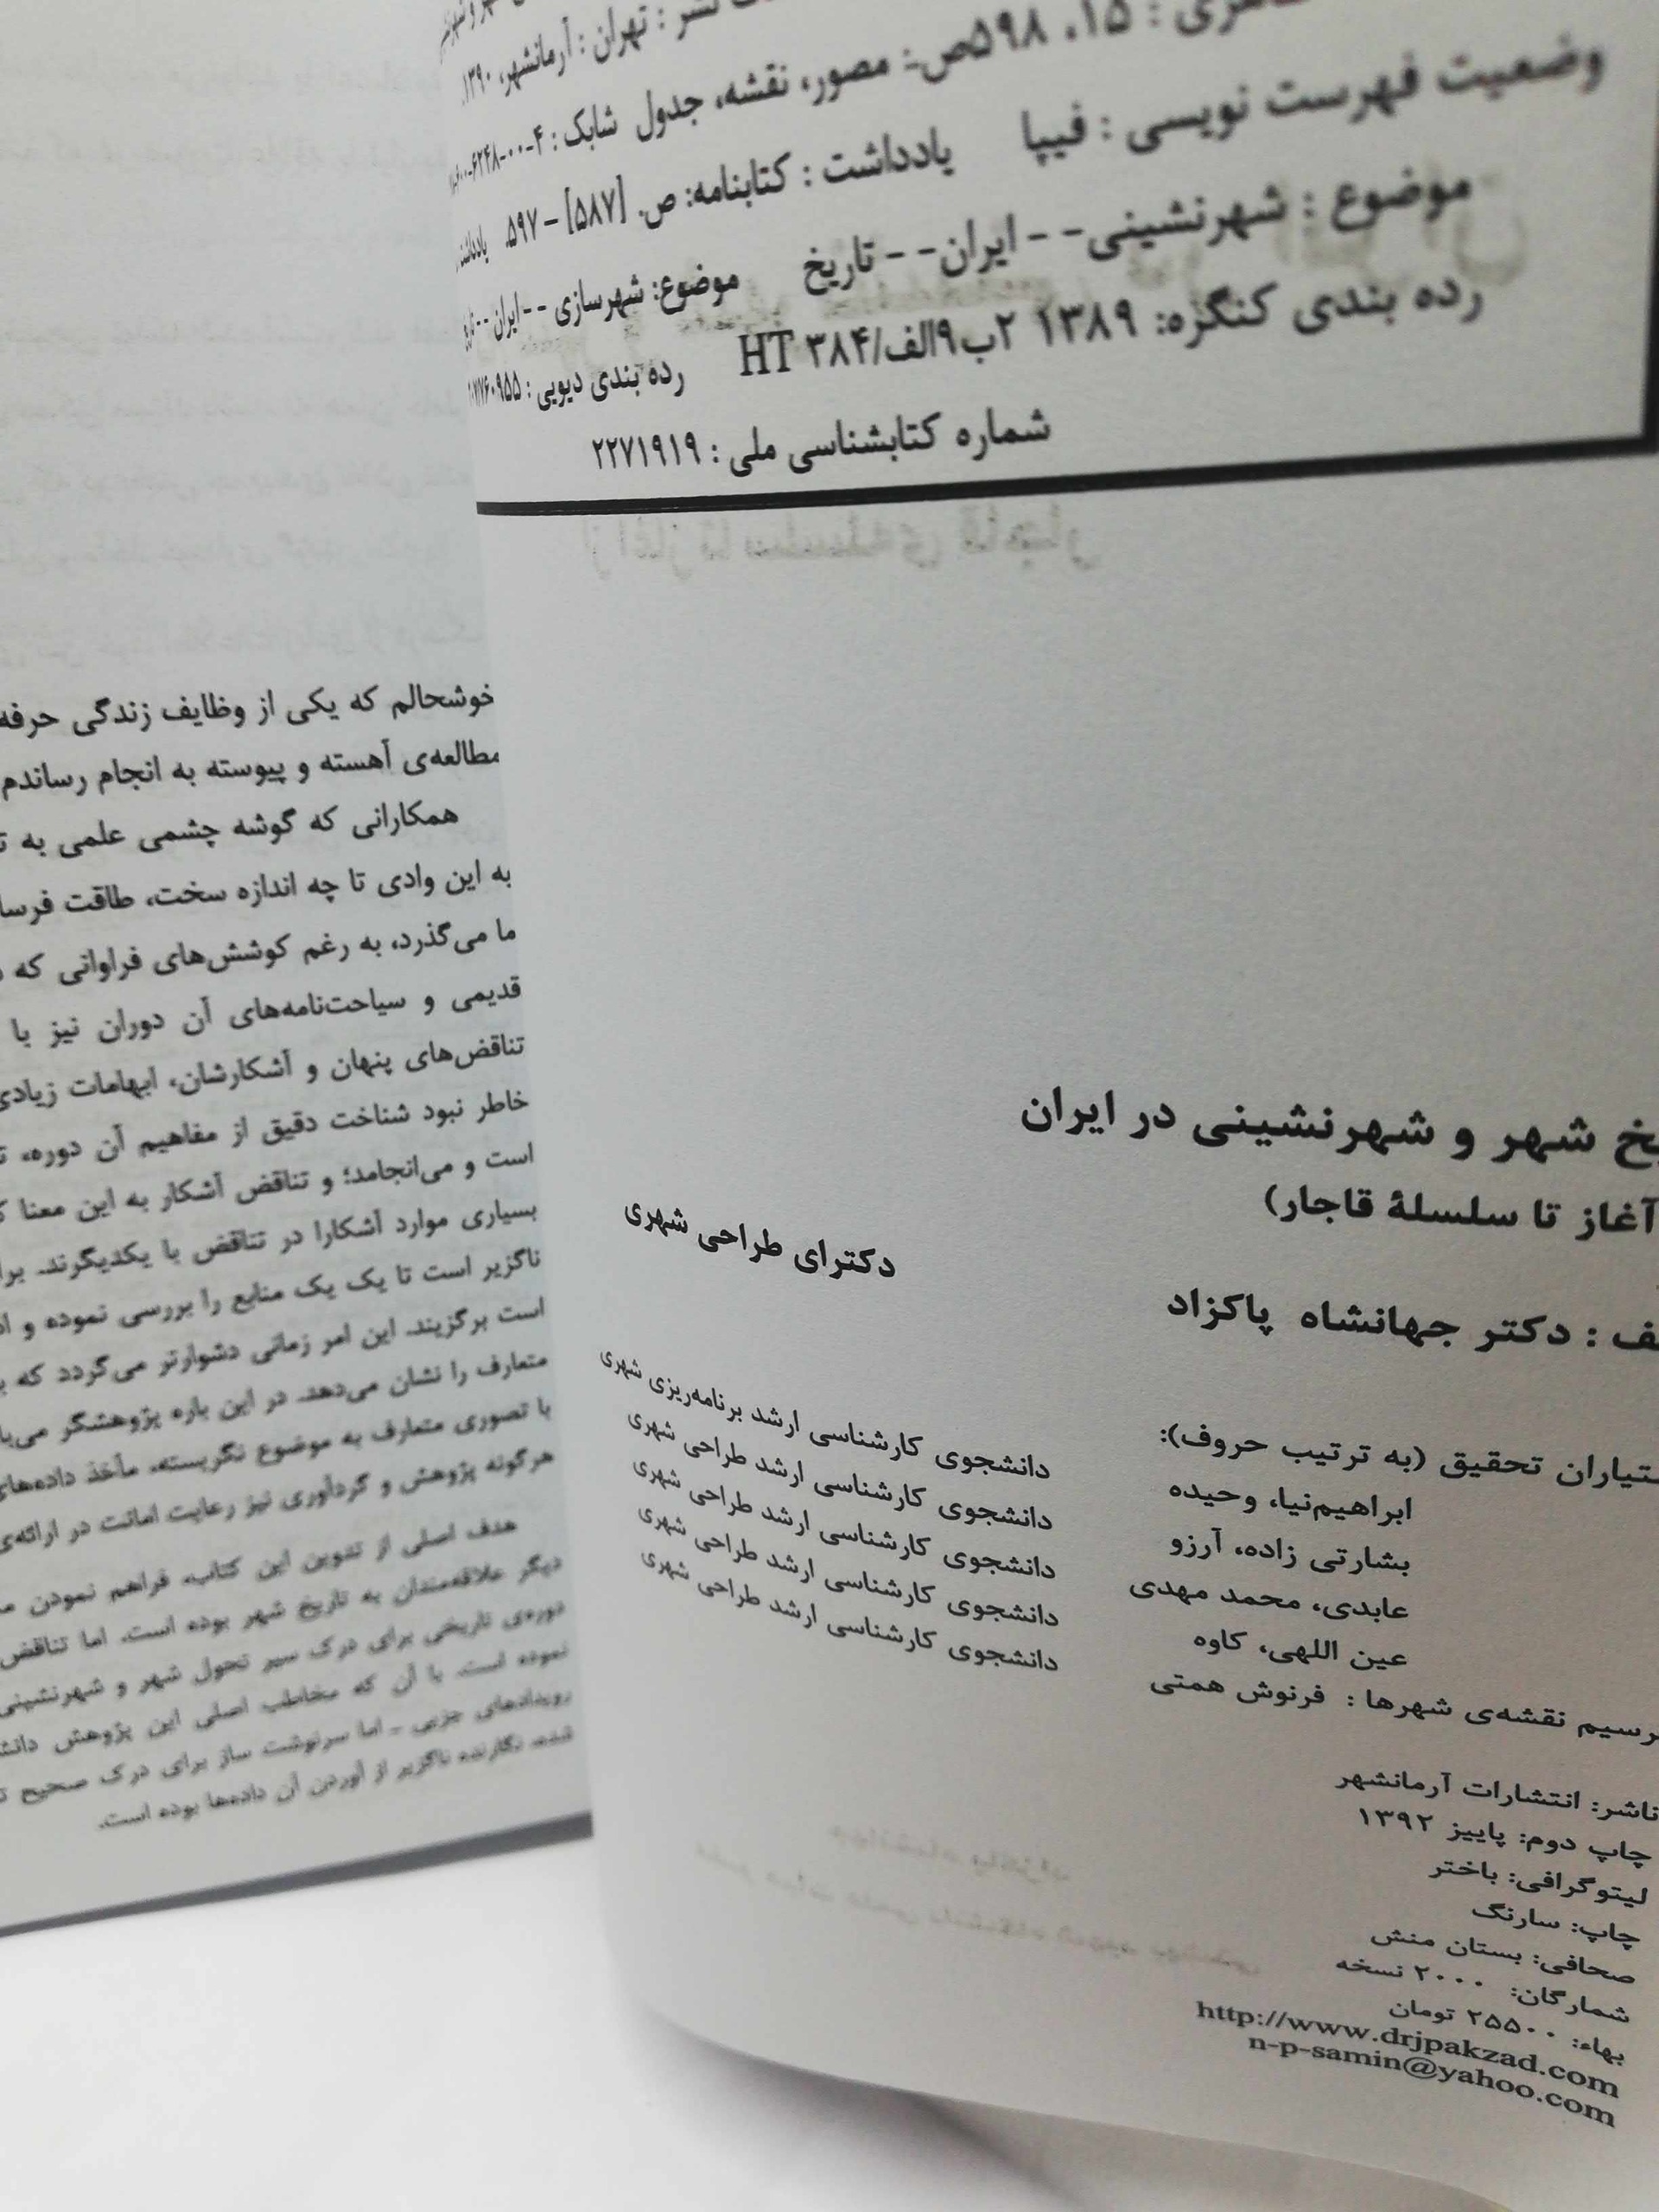 نشر : تهران : آرمانشهر، ۱۳۹۰.
۱۵، ۵۹۸ص.: مصور، نقشه، جدول شابک : ۴-۰۰-۶۲۴۸-۶۰۰-
وضعیت فهرست نویسی : فیپا یادداشت : کتابنامه: ص. [۵۸۷] - ۵۹۷.
موضوع : شهرنشینی- - ایران- - تاریخ موضوع: شهرسازی - - ایران - -
رده بندی کنگره: ۱۳۸۹ ۲ب۹الف/HT ۳۸۴ رده بندی دیویی :
شماره کتابشناسی ملی : ۲۲۷۱۹۱۹
شهر و شهرنشینی در ایران
آغاز تا سلسلهٔ قاجار)
: دکتر جهانشاه پاکزاد دکترای طراحی شهری
تحقیق (به ترتیب حروف):
ابراهیم‌نیا، وحیده دانشجوی کارشناسی ارشد برنامه‌ریزی شهری
بشارتی زاده، آرزو دانشجوی کارشناسی ارشد طراحی شهری
عابدی، محمد مهدی دانشجوی کارشناسی ارشد طراحی شهری
عین اللهی، کاوه دانشجوی کارشناسی ارشد طراحی شهری
نقشه‌ی شهرها : فرنوش همتی دانشجوی کارشناسی ارشد طراحی شهری
ناشر: انتشارات آرمانشهر
چاپ دوم: پاییز ۱۳۹۲
لیتوگرافی: باختر
چاپ: سارنگ
صحافی: بستان منش
شمارگان: ۲۰۰۰ نسخه
بهاء: ۲۵۵۰۰ تومان
http://www.drjpakzad.com
n-p-samin@yahoo.com
خوشحالم که یکی از وظایف زندگی حرفه
مطالعه‌ی آهسته و پیوسته به انجام رساندم
همکارانی که گوشه چشمی علمی به
به این وادی تا چه اندازه سخت، طاقت فرسا
ما می‌گذرد، به رغم کوشش‌های فراوانی که
قدیمی و سیاحت‌نامه‌های آن دوران نیز با
تناقض‌های پنهان و آشکارشان، ابهامات زیادی
خاطر نبود شناخت دقیق از مفاهیم آن دوره،
است و می‌انجامد؛ و تناقض آشکار به این معنا
بسیاری موارد آشکارا در تناقض با یکدیگرند.
ناگزیر است تا یک یک منابع را بررسی نموده و
است برگزیند. این امر زمانی دشوارتر می‌گردد که
متعارف را نشان می‌دهد. در این باره پژوهشگر
با تصوری متعارف به موضوع نگریسته، مأخذ داده‌های
هرگونه پژوهش و گردآوری نیز رعایت امانت در ارائه‌ی
هدف اصلی از تدوین این کتاب، فراهم نمودن
دیگر علاقه‌مندان به تاریخ شهر بوده است. اما تناقض
دوره‌ی تاریخی برای درک سیر تحول شهر و شهرنشینی
نموده است. با آن که مخاطب اصلی این پژوهش
رویدادهای جزیی - اما سرنوشت ساز برای درک صحیح
شده، نگارنده ناگزیر از آوردن آن داده‌ها بوده است.